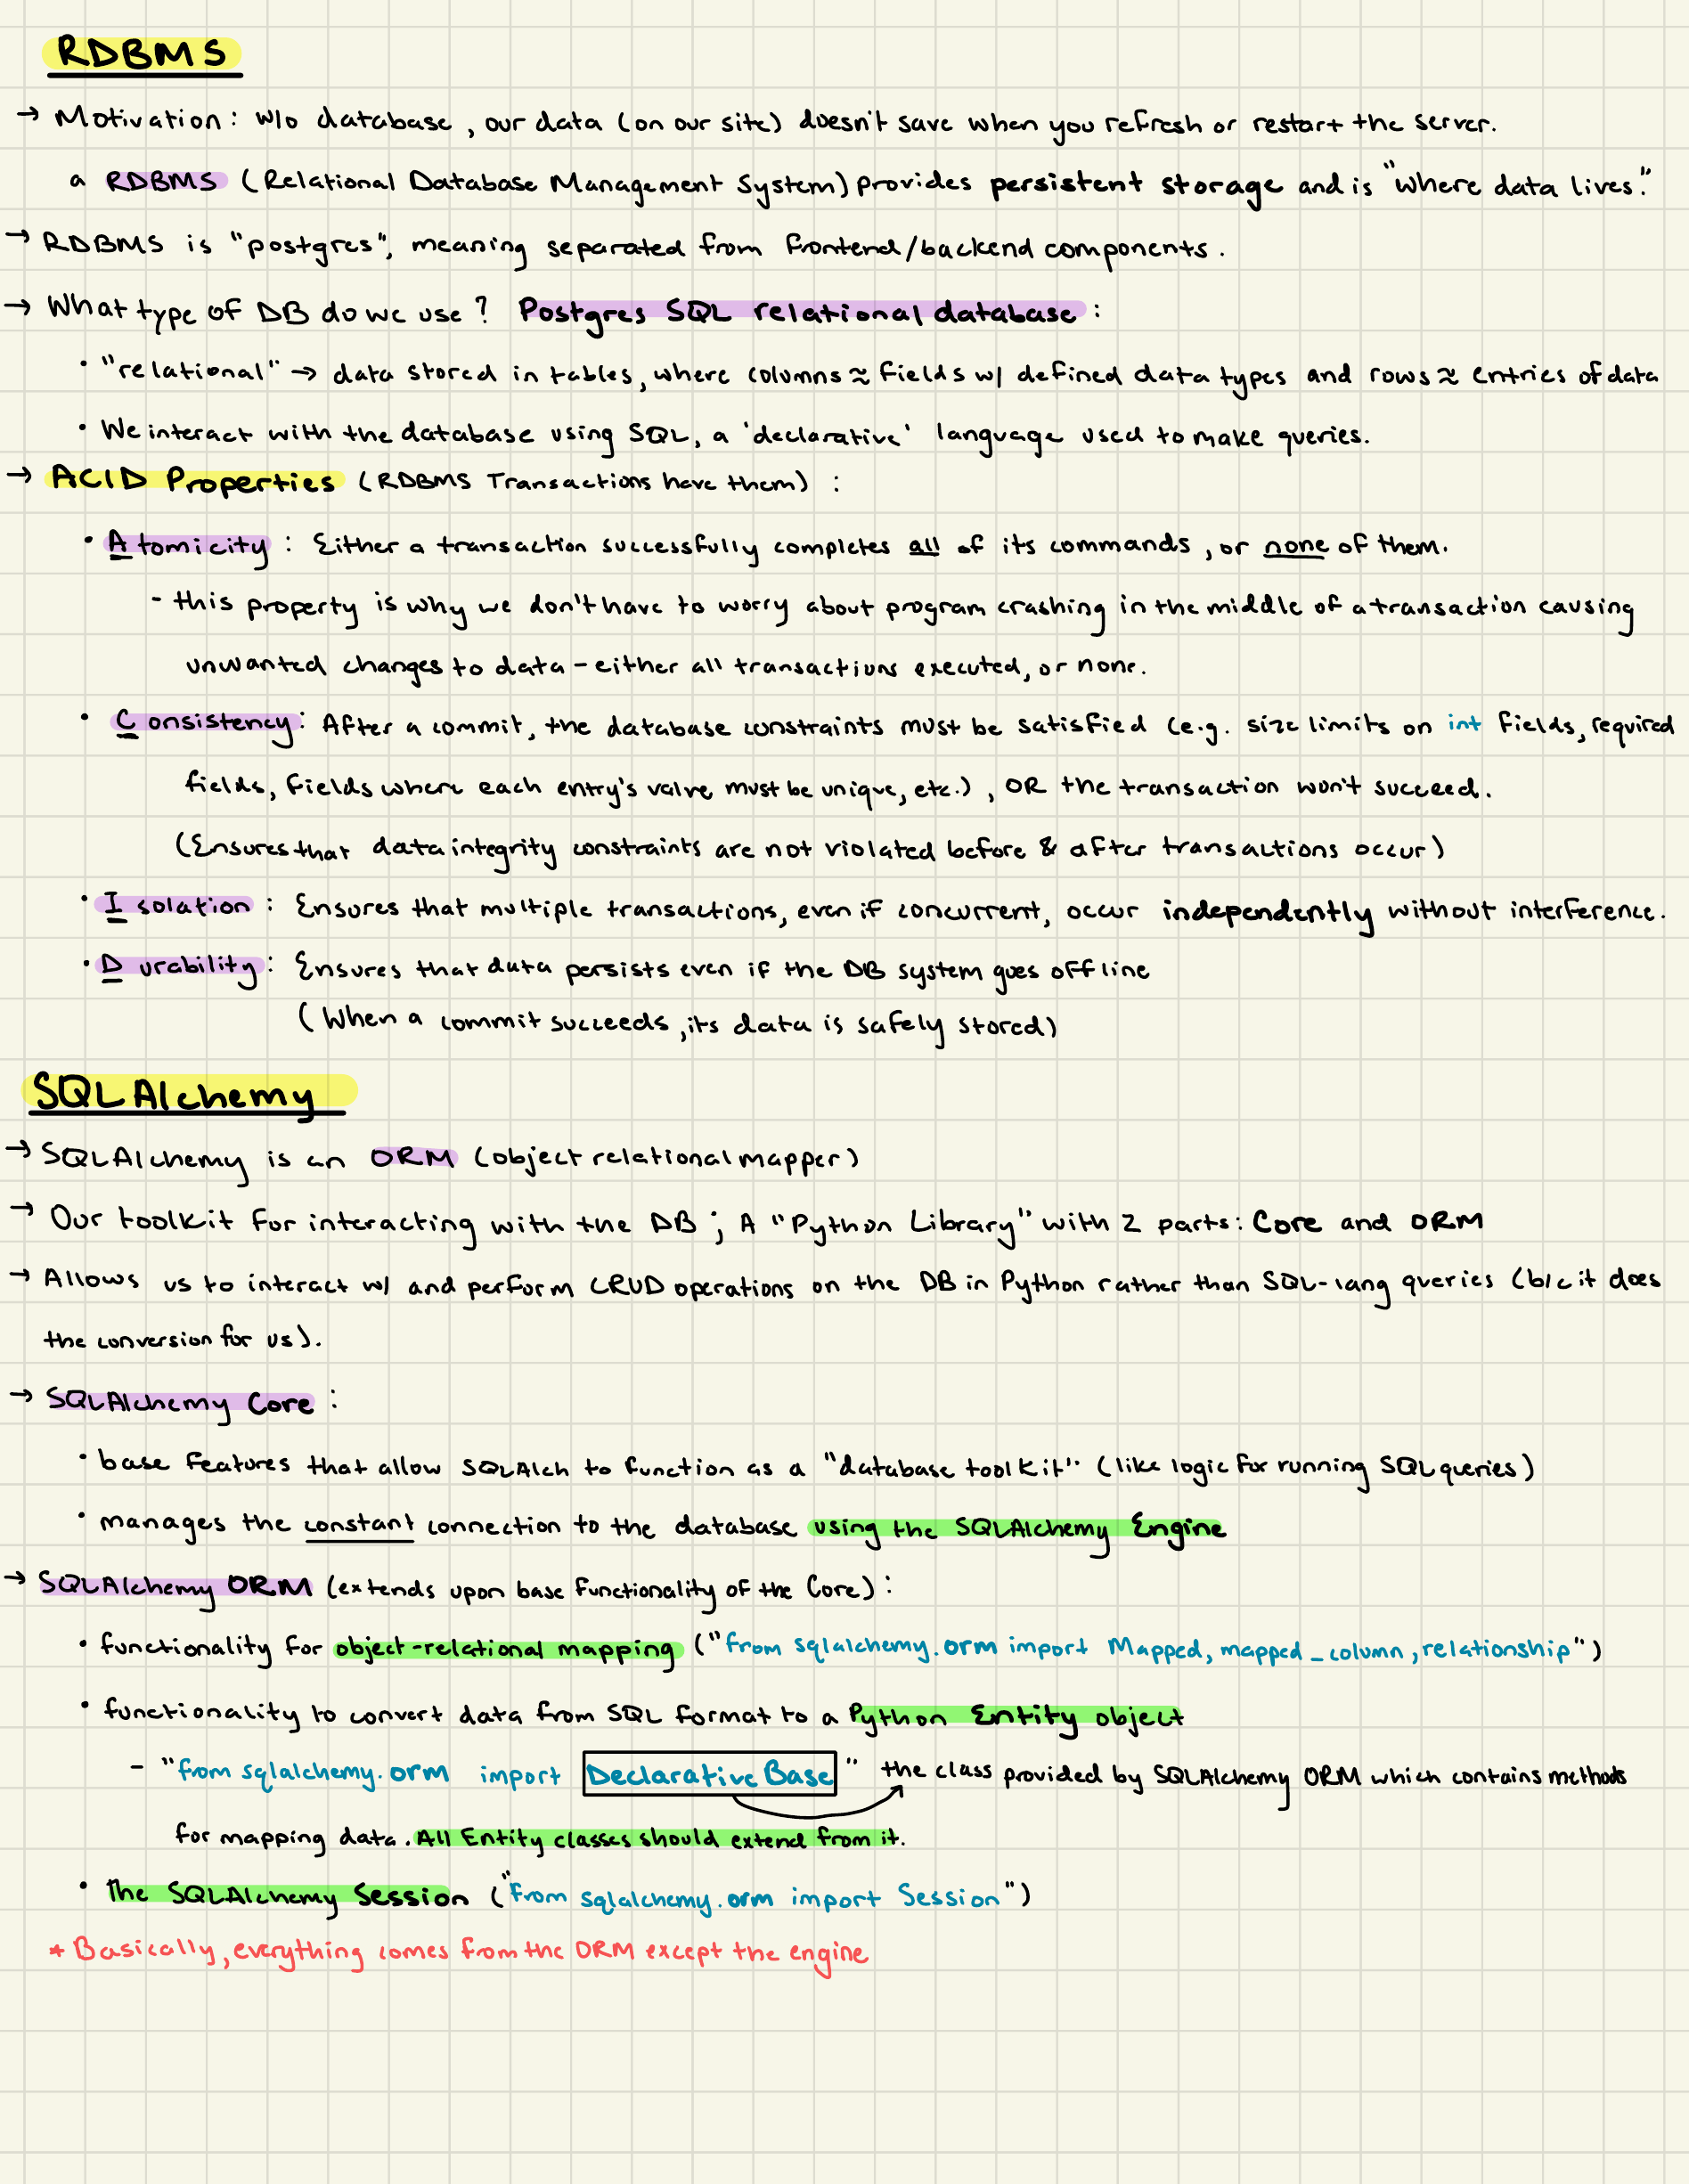 RDBMS
→ Motivation: w/o database, our data (on our site) doesn't save when you refresh or restart the server.
a RDBMS (Relational Database Management System) provides persistent storage and is "where data lives."
→ RDBMS is "postgres", meaning separated from frontend/backend components.
→ What type of DB do we use? Postgres SQL relational database:
• "relational" → data stored in tables, where columns ≈ fields w/ defined data types and rows ≈ entries of data
• We interact with the database using SQL, a 'declarative' language used to make queries.
→ ACID Properties (RDBMS Transactions have them):
• Atomicity: Either a transaction successfully completes all of its commands, or none of them.
- this property is why we don't have to worry about program crashing in the middle of a transaction causing
unwanted changes to data - either all transactions executed, or none.
• Consistency: After a commit, the database constraints must be satisfied (e.g. size limits on int fields, required
fields, fields where each entry's value must be unique, etc.), OR the transaction won't succeed.
(Ensures that data integrity constraints are not violated before & after transactions occur)
• Isolation: Ensures that multiple transactions, even if concurrent, occur independently without interference.
• Durability: Ensures that data persists even if the DB system goes offline
(When a commit succeeds, its data is safely stored)
SQLAlchemy
→ SQLAlchemy is an ORM (object relational mapper)
→ Our toolkit for interacting with the DB; A "Python Library" with 2 parts: Core and ORM
→ Allows us to interact w/ and perform CRUD operations on the DB in Python rather than SQL-lang queries (b/c it does
the conversion for us).
→ SQLAlchemy Core:
• base features that allow SQLAlch to function as a "database toolkit" (like logic for running SQL queries)
• manages the constant connection to the database using the SQLAlchemy Engine
→ SQLAlchemy ORM (extends upon base functionality of the Core):
• functionality for object-relational mapping ("from sqlalchemy.orm import Mapped, mapped_column, relationship")
• functionality to convert data from SQL format to a Python Entity object
- "from sqlalchemy.orm import Declarative Base" the class provided by SQLAlchemy ORM which contains methods
for mapping data. All Entity classes should extend from it.
• The SQLAlchemy Session ("from sqlalchemy.orm import Session")
* Basically, everything comes from the ORM except the engine